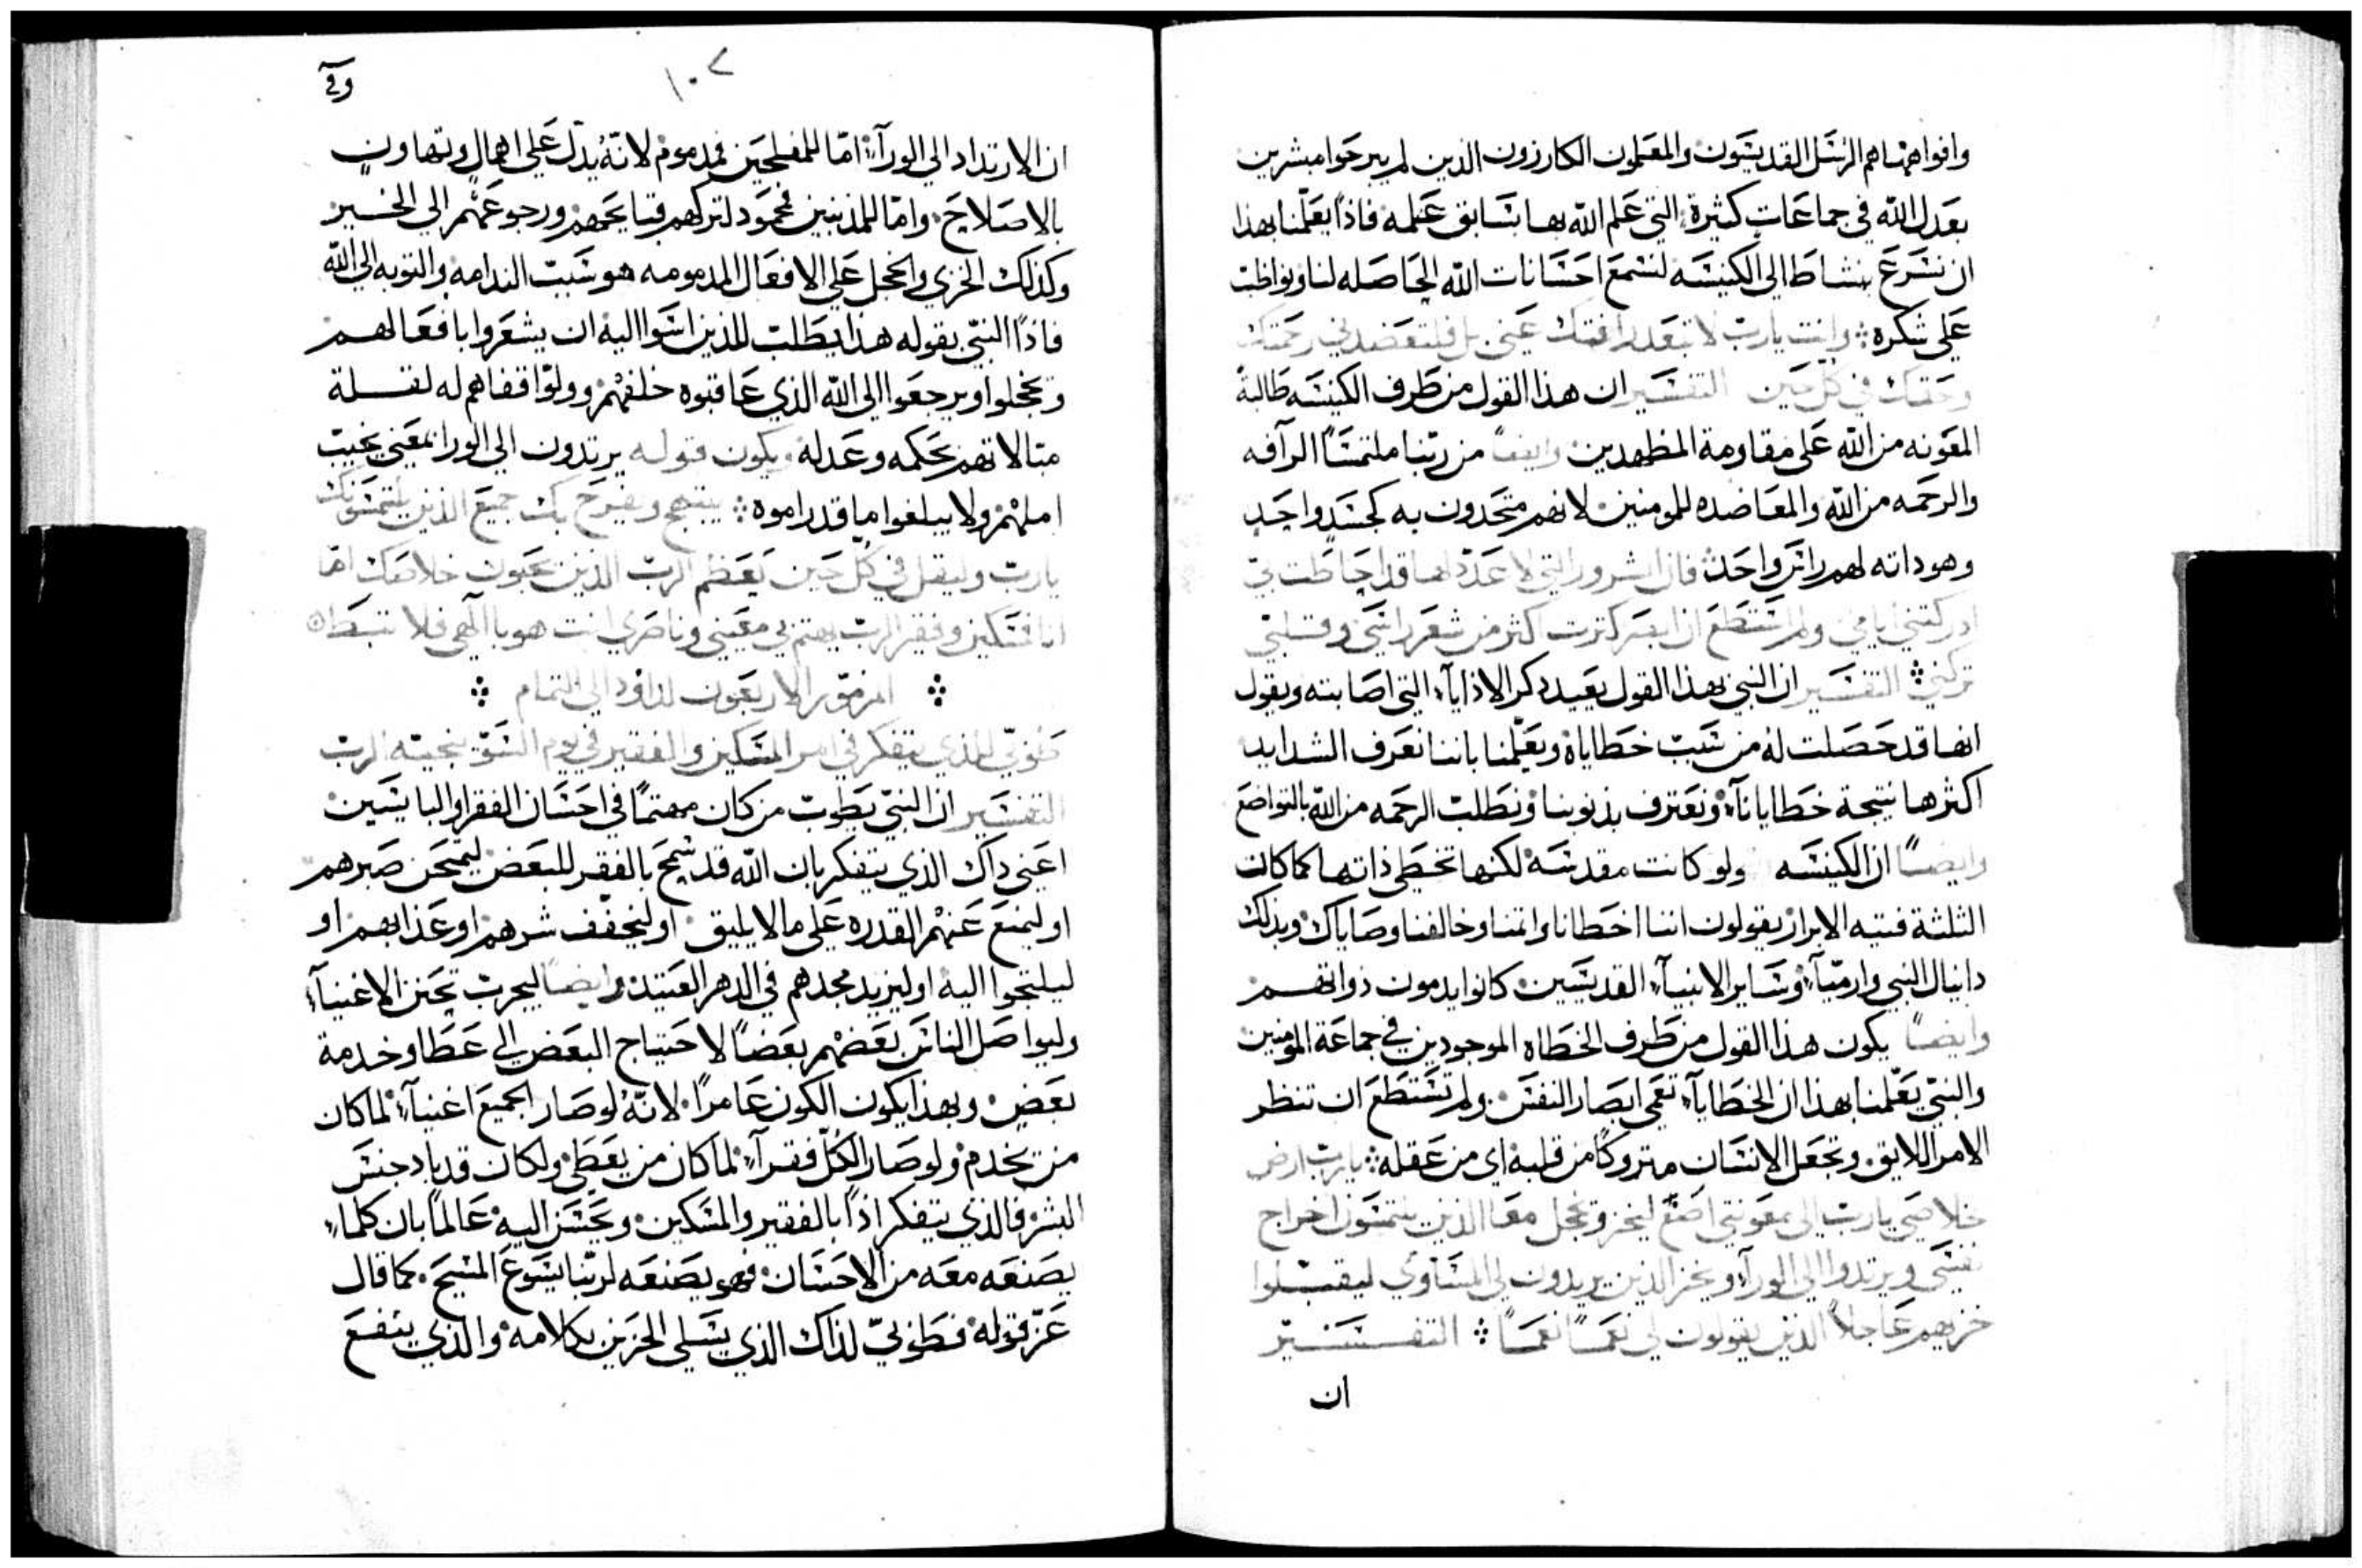 وافواهها هم الرسل القديسون والمعلمون الكارزون الذين لم يبرحوا مبشرين
بعدل الله في جماعات كثيرة التي علم الله بها بسابق علمه فاذا يعلمنا بهذا
ان نسرع بنشاط الي الكنيسه لنسمع احسانات الله الحاصله لنا ونواظب
علي شكره وانت يارب لا تبعد رافتك عني بل فلتعضدني رحمتك
وحقك في كل حين التفسير ان هذا القول من طرف الكنيسه طالبة
المعونه من الله علي مقاومة المظهدين وايضا من ربنا ملتمسا الرآفه
والرحمه من الله والمعاضده للمومنين لانهم متحدون به كجسد واحد
وهو داته لهم راس واحد فان الشرور التي لا عدد لها قد احاطت بي
ادركتني اثامي ولم استطع ان ابصر كترت اكثر من شعر راسي وقلبي
تركني التفسير ان النبي بهذا القول يعيد دكر الاذايآء التي اصابته ويقول
انها قد حصلت له من سبب خطاياه ويعلمنا باننا نعرف الشدايد
اكثرها نتيجة خطايانآء ونعترف بذنوبنا ونطلب الرحمه من الله بالتواضع
وايضا ان الكنيسه ولو كانت مقدسه لكنها تخطي ذاتها كما كان
الثلثة فتيه الابرار يقولون اننا اخطانا واتمنا وخالفنا وصاياك وبذلك
دانيال النبي وارميآء وساير الانبيآء القديسين كانوا يدمون ذواتهم
وايضا يكون هذا القول من طرف الخطاه الموجودين في جماعة المومنين
والنبي يعلمنا بهذا ان الخطايآء تعمي ابصار النفس ولم تستطع ان تنظر
الامر اللايق وتجعل الانسان متروكا من قلبه اي من عقله يارب ارض
خلاصي يارب الي معونتي اصغ ليخز ويخجل معا الذين يلتمسون اخراج
نفسي ويرتدوا الي الورآء ويخز الذين يريدون لي المساوي ليقبلوا
خزيهم عاجلا الذين يقولون لي نعما نعما التفسير
ان
١٠٢
وفي
ان الارتداد الي الورآء اما للمفلحين فمدموم لانه يدل علي اهمال وتهاون
بالاصلاح واما للمذنبين فمحمود لتركهم قبايحهم ورجوعهم الي الخير
وكذلك الخزي والخجل علي الافعال المدمومه هو سبب الندامه والتوبه الي الله
فاذا النبي بقوله هذا يطلب للذين اسوا اليه ان يشعروا بافعالهم
ويخجلوا ويرجعوا الي الله الذي عاقبوه خلفهم وولوا قفاهم له لقلة
مبالاتهم بحكمه وعدله ويكون قوله يرتدون الي الورا بمعني يخيب
املهم ولا يبلغوا ما قد راموه يبتهج ويفرح بك جميع الذين يلتمسونك
يارب وليقل في كل حين يعظم الرب الذين يحبون خلاصك اما
انا فمسكين وفقير الرب يهتم بي معيني وناصري انت هو يا الهي فلا تبطا
المزمور الاربعون لداوود الي التمام
طوبي للذي يتفكر في امر المسكين والفقير في يوم السوء ينجيه الرب
التفسير ان النبي يطوب من كان مهتما في احسان الفقرا والبايسين
اعني داك الذي يتفكر بان الله قد سمح بالفقر للبعض ليمتحن صبرهم
او ليمنع عنهم القدره علي ما لا يليق او ليخفف شرهم او عذابهم او
ليلتجوا اليه او ليزيد مجدهم في الدهر العتيد وايضا ليجرب تحنن الاغنيآء
وليواصل الناس بعضهم بعضا لاحتياج البعض الي عطا وخدمة
بعض وبهذا يكون الكون عامرا لانه لو صار الجميع اغنيآء لما كان
من يخدم ولو صار الكل فقرآء لما كان من يعطي ولكان قد باد جنس
البشر فالذي يتفكر اذا بالفقير والمسكين ويحسن اليه عالما بان كلما
يصنعه معه من الاحسان فهو يصنعه لربنا يسوع المسيح كما قال
عز قوله فطوبي لذاك الذي يسلي الحزين بكلامه والذي ينفع